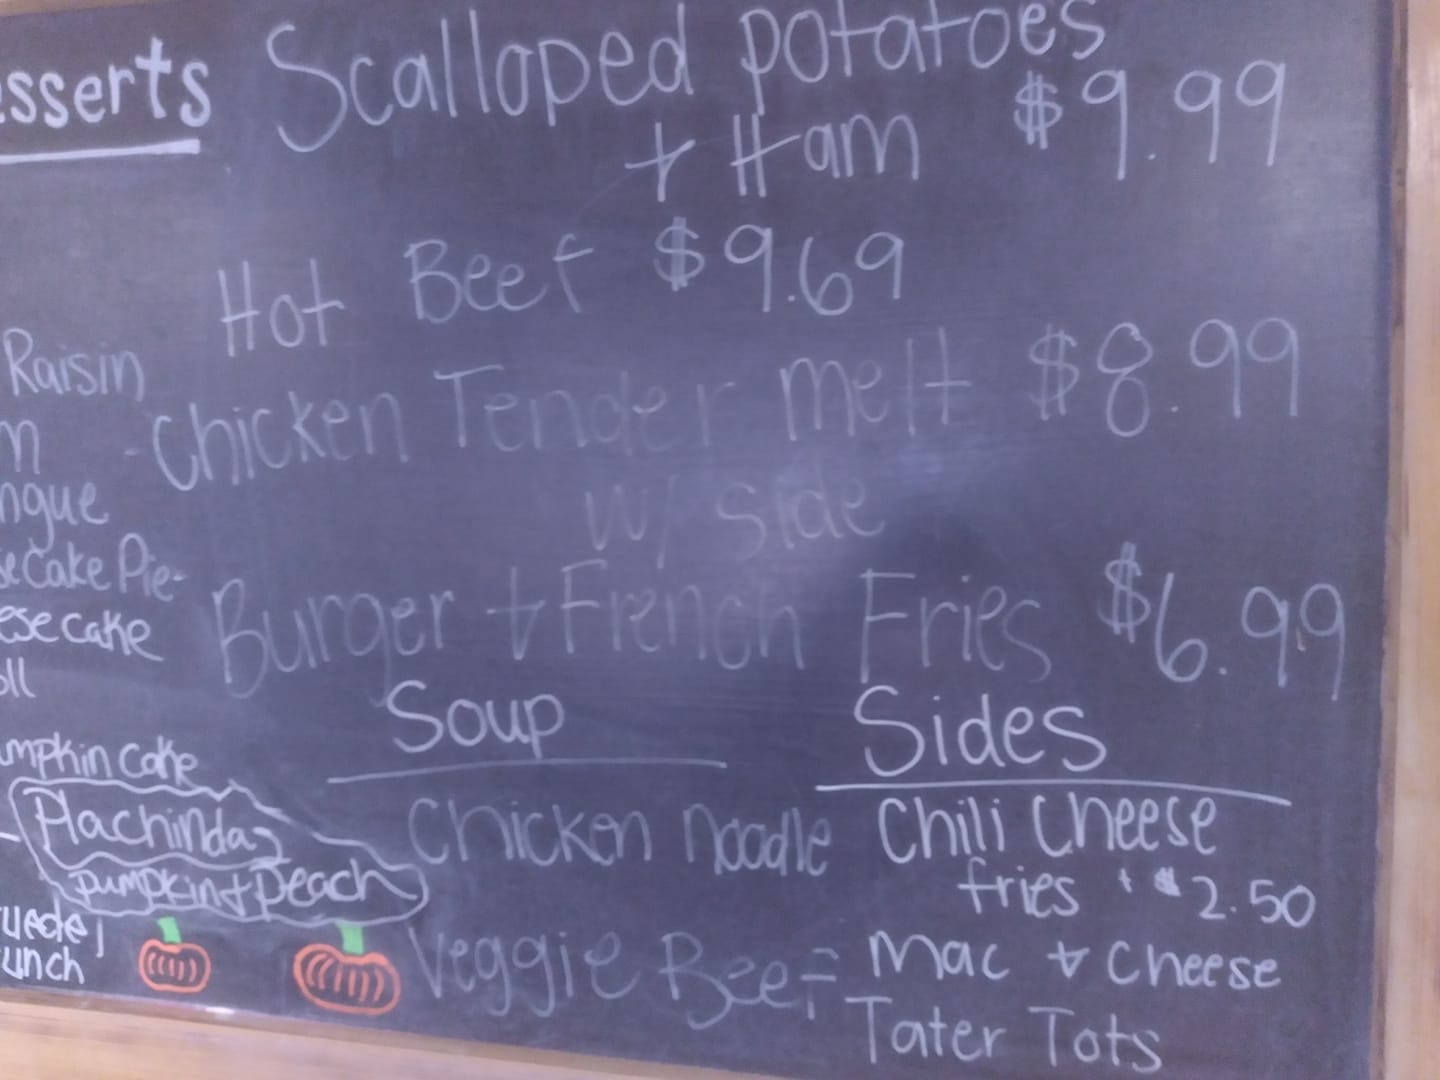 sserts
Raisin
ngue
ecake Pie-
esecake
oll
mpkin cake
Plachinda
pumpkin + peach
unch
Scalloped potatoes
+ Ham $9.99
Hot Beef $9.69
-Chicken Tender melt $8.99
w/ side
Burger + French Fries $6.99
Soup
Chicken Noodle
Veggie Beef
Sides
Chili Cheese
fries + $2.50
Mac + Cheese
Tater Tots